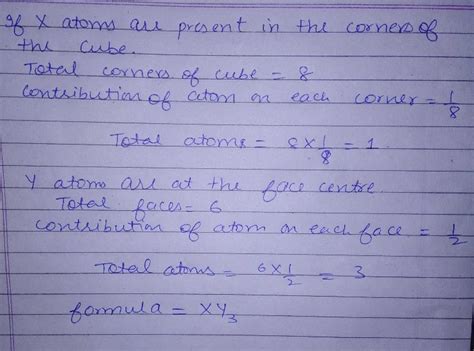 If X atoms are present in the corners of
the cube.
Total corners of cube = 8
Contribution of atom on each corner = 1/8
Total atoms = 8 × 1/8 = 1
Y atoms are at the face centre.
Total faces = 6
Contribution of atom on each face = 1/2
Total atoms = 6 × 1/2 = 3
formula = XY₃